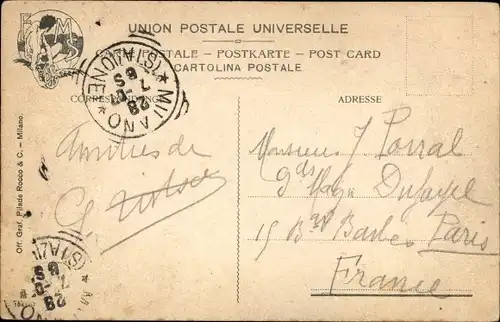 UNION POSTALE UNIVERSELLE
CARTE POSTALE – POSTKARTE – POST CARD
CARTOLINA POSTALE
CORRESPONDENCE
ADRESSE
MILANO
(STAZIONE)
28
7-01
8S
Off. Graf. Pilade Rocco & C. – Milano.
Amitiés de
G.
Monsieur J Porral
gds Mag. Dufayel
15 Bd Barbes Paris
France
MILANO
(STAZ
28
7-01
8S